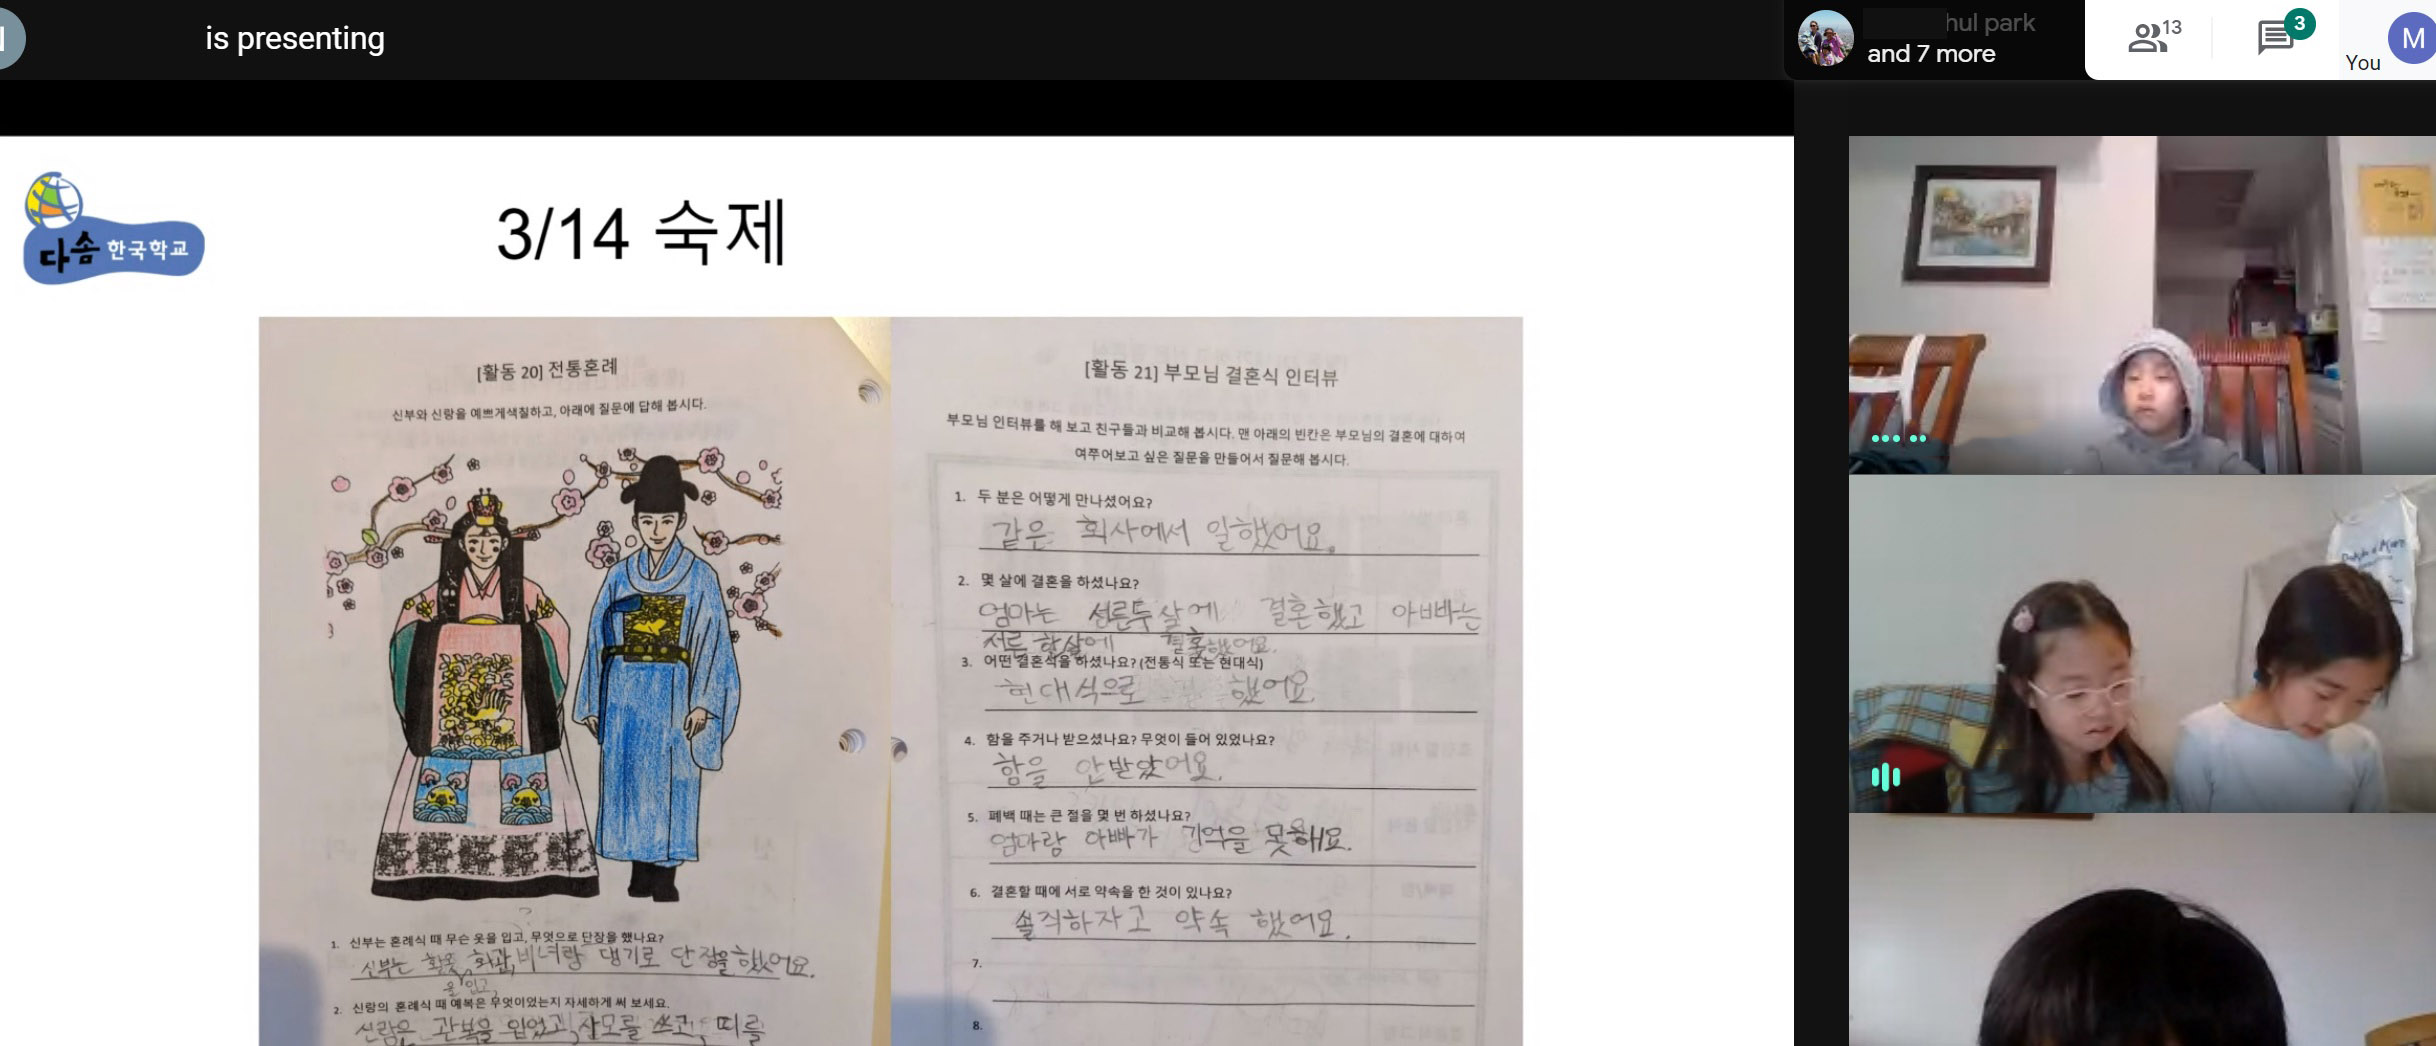 is presenting
hul park
and 7 more
13
3
You
M
다솜 한국학교
3/14 숙제
[활동 20] 전통혼례
신부와 신랑을 예쁘게색칠하고, 아래에 질문에 답해 봅시다.
1. 신부는 혼례식 때 무슨 옷을 입고, 무엇으로 단장을 했나요?
신부는 활옷 화관, 비녀랑 댕기로 단장을 했어요.
을 입고,
2. 신랑의 혼례식 때 예복은 무엇이었는지 자세하게 써 보세요.
신랑은 관복을 입었고, 사모를 쓰고, 띠를
[활동 21] 부모님 결혼식 인터뷰
부모님 인터뷰를 해 보고 친구들과 비교해 봅시다. 맨 아래의 빈칸은 부모님의 결혼에 대하여
여쭈어보고 싶은 질문을 만들어서 질문해 봅시다.
1. 두 분은 어떻게 만나셨어요?
같은 회사에서 일했어요.
2. 몇 살에 결혼을 하셨나요?
엄마는 서른두살에 결혼했고 아빠는
서른 한살에 결혼했어요.
3. 어떤 결혼식을 하셨나요? (전통식 또는 현대식)
현대식으로 했어요.
4. 함을 주거나 받으셨나요? 무엇이 들어 있었나요?
함을 안받았어요.
5. 폐백 때는 큰 절을 몇 번 하셨나요?
엄마랑 아빠가 기억을 못해요.
6. 결혼할 때에 서로 약속을 한 것이 있나요?
솔직하자고 약속 했어요.
7.
8.